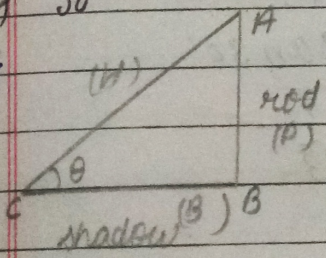 A
(H)
rod
(P)
θ
C
B
shadow (B)